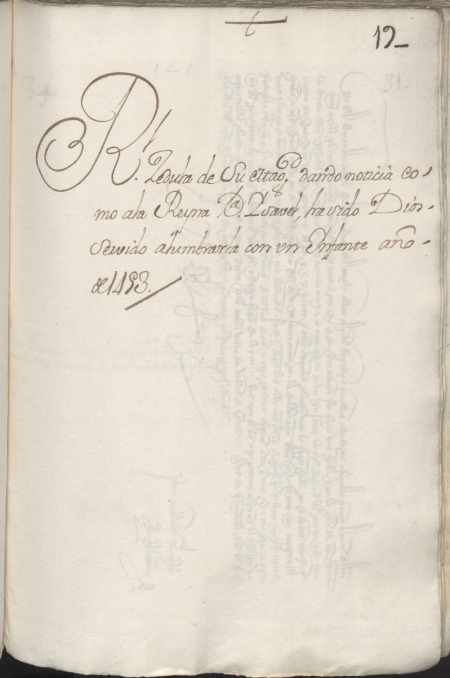 12
Rl. Zedula de Su Magd. dando noticia co-
mo ala Reyna Da. Ysavel, ha sido Dios
Servido alumbrarla con vn Infante año
de 1453.